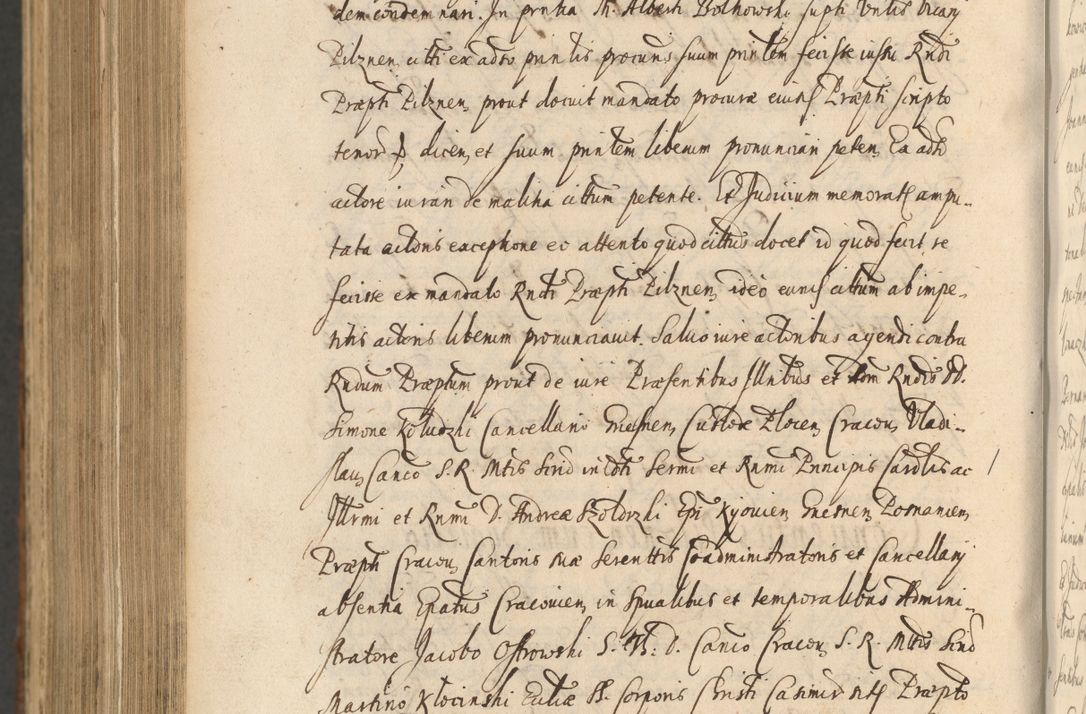 demcondemnari. In pntia M. Alberti Bolkowski supti Vntis Vicarij
Pilznen citti ex adto printis procurs suum printem fecisse iussu Rndi
Præpti Pilznen, prout docuit mandato procuræ eiusd Præpti scripto
tenor dicen, et suum printem liberum pronunciari peten, Ea adto
actore iurari de malitia cittum petente. Et Judicium memorata ampu-
tata actoris exceptione eo attento quod cittus docet id quod fecit se
fecisse ex mandato Rndi Præpti Pilznen, ideo eund cittum ab impe-
titis actoris liberum pronunciavit. Salvo iure actoribus agendi contra
Rndum Præptum prout de iure Præsentibus Illribus et Adm Rndis DD.
Simone Kołudzki Cancellario Gnesnen, Custode Plocen, Cracou, Vladi-
slau, Canco S. R. Mtis Secrio in toti Sermi et Rnmi Principis Cardlis ac
Illrmi et Rnmi D. Andreæ Szołdrzki Epi Kyovien, Gnesnen, Posnanien,
Præpti Cracou, Cantoris suæ Serenttis Coadministratoris et Cancellarij
absentia Epatus Cracovien, in spualibus et temporalibus Admini-
stratore, Jacobo Ostrowski S. Th. D. Canco Cracou, S. R. Mttis Secrio
Martino Kłocinski Ecliæ SS. Corporis Christi Casimir sitæ Præpto